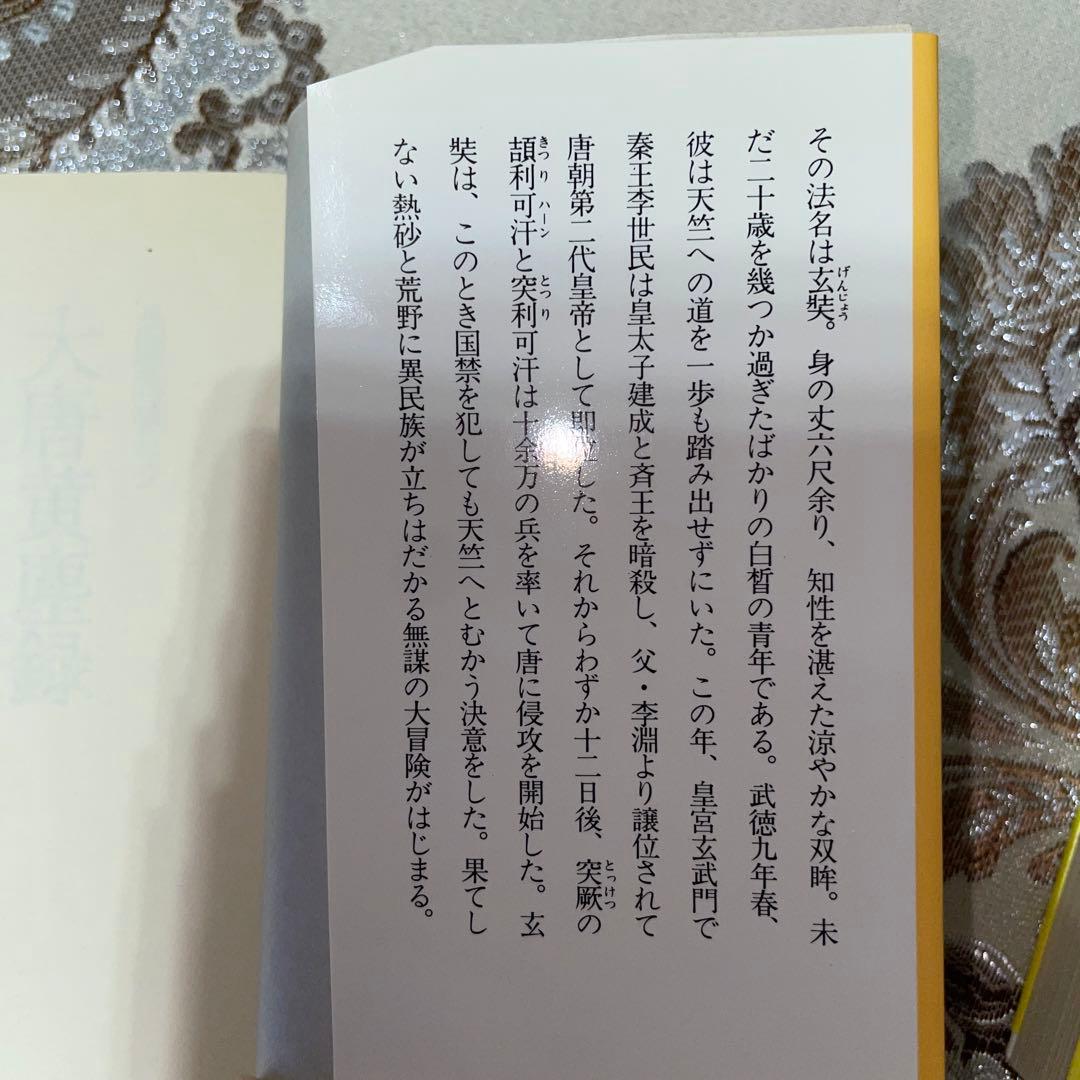 その法名は玄奘。身の丈六尺余り、知性を湛えた涼やかな双眸。未
げんじょう
だ二十歳を幾つか過ぎたばかりの白皙の青年である。武徳九年春、
彼は天竺への道を一歩も踏み出せずにいた。この年、皇宮玄武門で
秦王李世民は皇太子建成と斉王を暗殺し、父・李淵より譲位されて
唐朝第二代皇帝として即位した。それからわずか十二日後、突厥の
とっけつ
頡利可汗と突利可汗は十余万の兵を率いて唐に侵攻を開始した。玄
きつりハーン とつり
奘は、このとき国禁を犯しても天竺へとむかう決意をした。果てし
ない熱砂と荒野に異民族が立ちはだかる無謀の大冒険がはじまる。